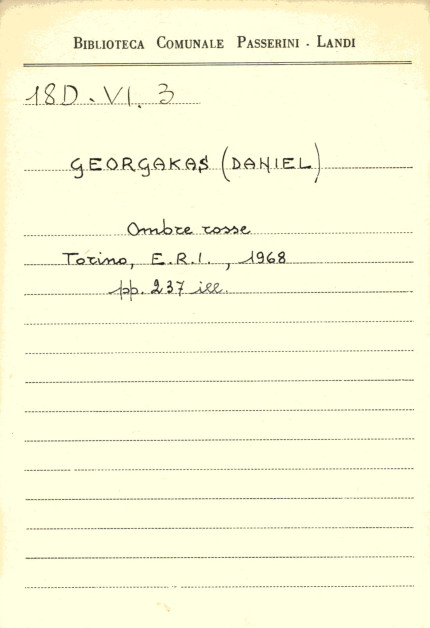 BIBLIOTECA COMUNALE PASSERINI - LANDI
18D.VI.3
GEORGAKAS (DANIEL)
Ombre rosse
Torino, E.R.I., 1968
pp. 237 ill.